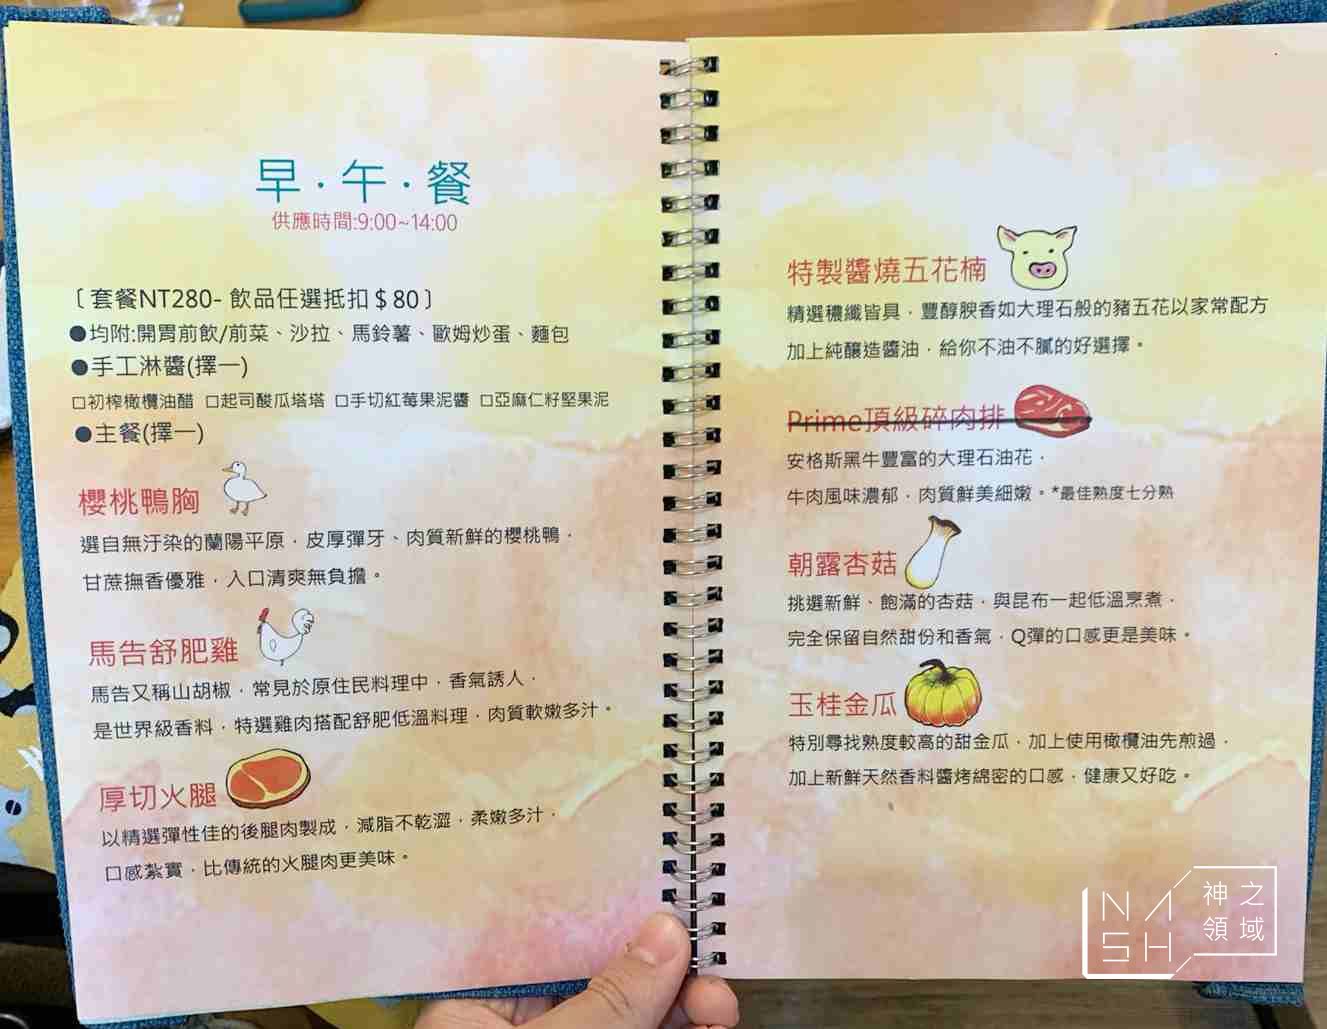 早·午·餐
供應時間:9:00~14:00
〔套餐NT280- 飲品任選抵扣$80〕
●均附:開胃前飲/前菜、沙拉、馬鈴薯、歐姆炒蛋、麵包
●手工淋醬(擇一)
□初榨橄欖油醋 □起司酸瓜塔塔 □手切紅莓果泥醬 □亞麻仁籽堅果泥
●主餐(擇一)
櫻桃鴨胸
選自無汙染的蘭陽平原，皮厚彈牙、肉質新鮮的櫻桃鴨，
甘蔗撫香優雅，入口清爽無負擔。
馬告舒肥雞
馬告又稱山胡椒，常見於原住民料理中，香氣誘人，
是世界級香料，特選雞肉搭配舒肥低溫料理，肉質軟嫩多汁。
厚切火腿
以精選彈性佳的後腿肉製成，減脂不乾澀，柔嫩多汁，
口感紮實，比傳統的火腿肉更美味。
特製醬燒五花楠
精選穠纖皆具，豐醇腴香如大理石般的豬五花以家常配方
加上純釀造醬油，給你不油不膩的好選擇。
Prime頂級碎肉排
安格斯黑牛豐富的大理石油花，
牛肉風味濃郁，肉質鮮美細嫩。*最佳熟度七分熟
朝露杏菇
挑選新鮮、飽滿的杏菇，與昆布一起低溫烹煮，
完全保留自然甜份和香氣，Q彈的口感更是美味。
玉桂金瓜
特別尋找熟度較高的甜金瓜，加上使用橄欖油先煎過，
加上新鮮天然香料醬烤綿密的口感，健康又好吃。
NASH
神之
領域